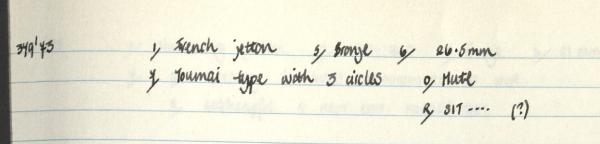 349'73 1, French jetton 5, Bronze 6, 26.5mm
7, Tournai type with 3 circles 0, Mute
R, SIT ---- (?)